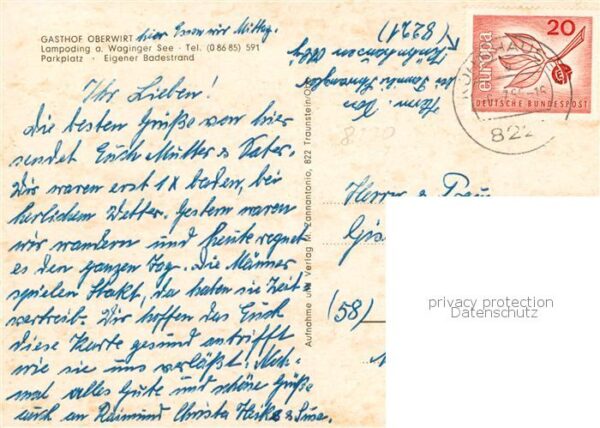 GASTHOF OBERWIRT
hier Essen wir Mittag.
Lampoding a. Waginger See · Tel. (0 86 85) 591
Parkplatz · Eigener Badestrand
Ihr Lieben!
Die besten Grüße von hier
sendet Euch Mutter & Vater.
Wir waren erst 1x baden, bei
herlichem Wetter. Gestern waren
wir wandern und heute regnet
es den ganzen Tag. Die Männer
spielen Skakt, da haben sie Zeit
vertreib. Wir hoffen das Euch
diese Karte gesund antrifft
wie sie uns verläßt. Noch-
mal alles Gute und schöne Grüße
auch an Raimund Christa Heike & Suse.
Aufnahme und Verlag M. Zannantonio, 822 Traunstein/Ob
(8221)
8220
europa
20
DEUTSCHE BUNDESPOST
822
Herrn & Frau
(58)
privacy protection
Datenschutz